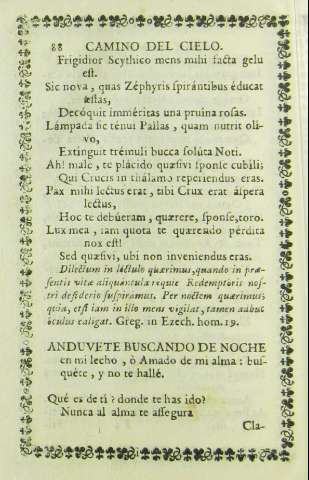 88 CAMINO DEL CIELO.
Frigidior Scythico mens mihi facta gelu
est.
Sic nova, quas Zéphyris spirántibus éducat
æstas,
Decóquit imméritas una pruína rosas.
Lámpada sic ténui Pallas, quam nutrit olí-
vo,
Extínguit trémuli bucca solúta Noti.
Ah! male, te plácido quæsívi sponse cubíli;
Qui Crucis in thálamo reperiéndus eras.
Pax mihi lectus erat, tibi Crux erat áspera
lectus,
Hoc te debúeram, quǽrere, sponse, toro.
Lux mea, iam quota te quærendo pérdita
nox est!
Sed quæsívi, ubi non inveniéndus eras.
Dilectum in lectulo quærimus, quando in præ-
sentis vitæ aliquántula requie Redemptoris nos-
tri desiderio suspiramus. Per noctem quærimus
quia, etsi iam in illo mens vigilat, tamen adhuc
óculus caligat. Greg. in Ezech. hom. 19.
ANDUVETE BUSCANDO DE NOCHE
en mi lecho, ò Amado de mi alma: bus-
quéte, y no te hallé.
Qué es de tí? donde te has ido?
Nunca al alma te assegura
Cla-